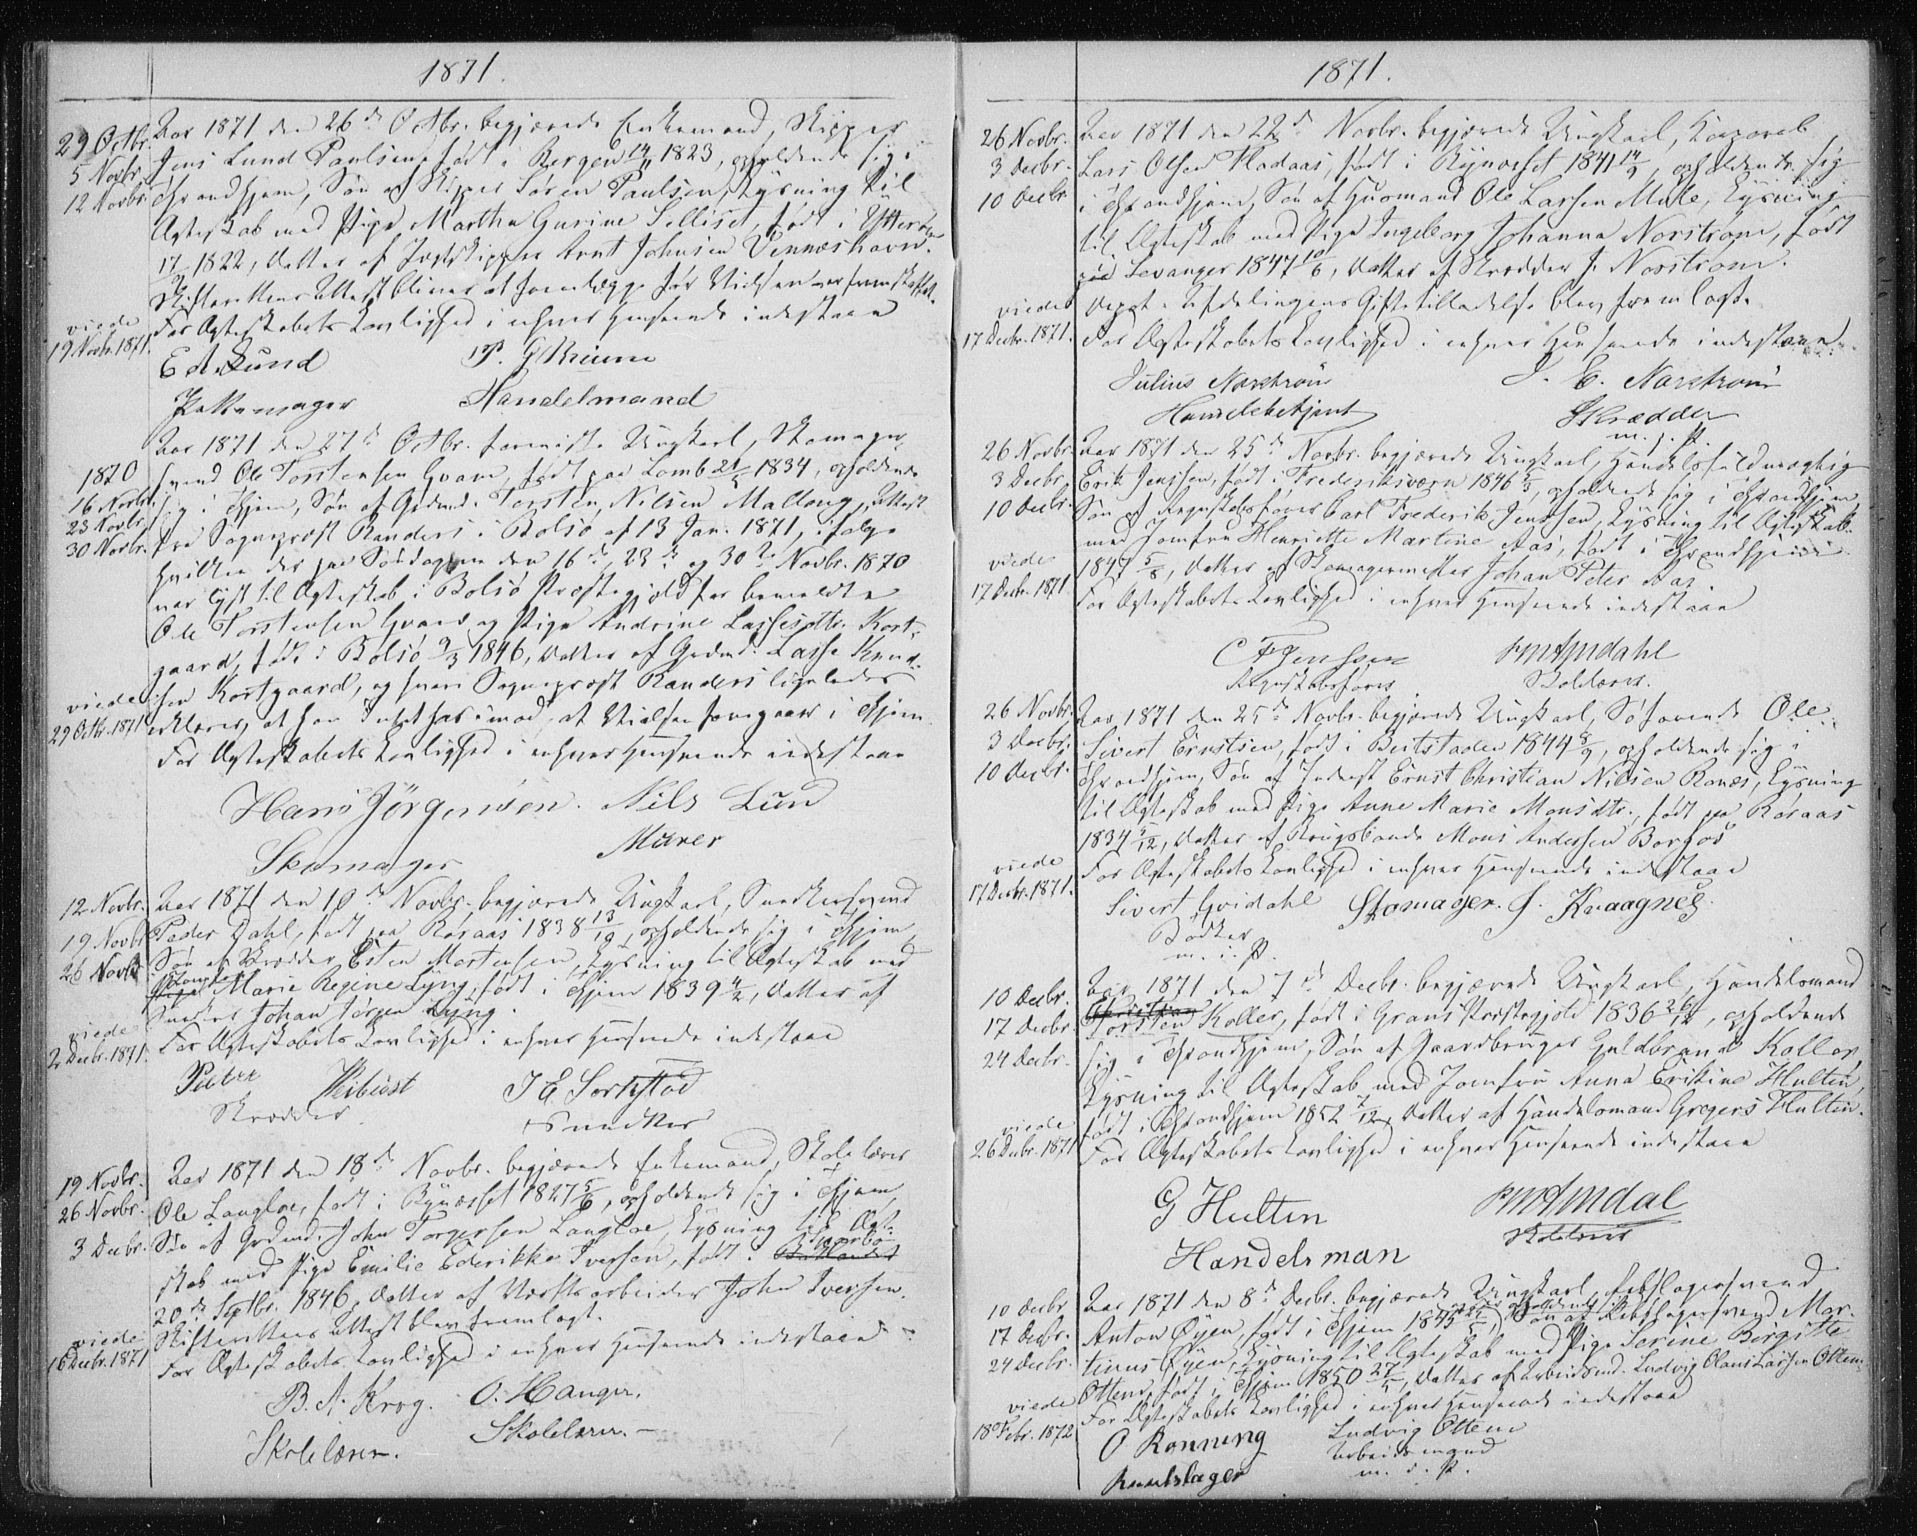 1871.
29 Octbr. Aar 1871 den 26de Octbr. begjærede Enkemand, Skipper
5 Novbr. Jens Lund Paulsen, født i Bergen 1823, opholdende sig i
12 Novbr. Throndhjem, Søn af Skipper Søren Paulsen, Lysning til
Ægteskab med Pige Martha Gurine Selliset, født i Ytterøen
1822, Datter af Jægtskipper Arnt Johnsen Vennæshavn.
Skifterettens Attest bliver at fremlægge før Vielsen
viede For Ægteskabets Lovlighed i enhver Henseende indestaae
19 Novbr. 1871.
E A Lund P. G Thieme
Pottemager Handelmand
Aar 1871 den 27de Octbr. foreviste Ungkarl, Skomager-
1870 svend Ole Torstensen Gvam, født paa Lomb 1834, opholdende
16 Novbr. sig i Thjem, Søn af Grdmd. Torsten Nilsen Mallong, Attest
23 Novbr. fra Sogneprest Randers i Bolsø af 13 Jan. 1871, ifølge
30 Novbr. hvilken der paa Søndagene den 16de, 23de og 30te Novbr. 1870
var lyst til Ægteskab i Bolsø Præstegjæld for bemeldte
Ole Torstensen Gvam og Pige Andrine Lassesdtr. Kort-
gaard, født i Bolsø 9/3 1846, Datter af Grdmd. Lasse Knud-
viede sen Kortgaard, og hvori Sogneprest Randers ligeledes
29 Octbr. 1871 erklærer, at han Intet har imod, at Vielsen foregaaer i Thjem.
For Ægteskabets Lovlighed i enhver Henseende indestaae
Hans Jørgensen. Nils Lund
Skomager Murer
12 Novbr. Aar 1871 den 10de Novbr. begjærede Ungkarl, Snedkersvend
19 Novbr. Peder Dahl, født paa Røraas 1838 13/10, opholdende sig i Thjem,
26 Novbr. Søn af Skrædder Esten Mortensen, Lysning til Ægteskab med
Jomfru Marie Regine Lyng, født i Thjem 1839 4/2, Datter af
viede Snedker Johan Jørgen Lyng.
2 Decbr. 1871. For Ægteskabets Lovlighed i enhver Henseende indestaae
Peter Skrædder
J E Sortstød Snedker
19 Novbr. Aar 1871 den 18de Novbr. begjærede Enkemand, Skolelærer
26 Novbr. Ole Langloe, født i Bynæsset 1827 5/6, opholdende sig i Thjem,
3 Decbr. Søn af Grdmd. John Torgersen Langloe, Lysning til Ægte-
skab med Pige Emilie Ederikke Iversen, født i
20de Septbr. 1846, Datter af Værftsarbeider John Iversen.
viede Skifterettens Attest blev fremlagt.
16 Decbr. 1871 For Ægteskabets Lovlighed i enhver Henseende indestaae
B. A. Krog. O. Hanger.
Skolelærer. Skolelærer.
1871.
26 Novbr. Aar 1871 den 22de Novbr. begjærede Ungkarl, Korporal
3 Decbr. Lars Olsen Fladaas, født i Bynæsset 1841 14/9, opholdende sig
10 Decbr. i Throndhjem, Søn af Husmand Ole Larsen Mule, Lysning
til Ægteskab med Pige Ingeborg Johanna Norstrøm, født
paa Levanger 1847 10/6, Datter af Skrædder J. Norstrøm.
viede Depot-Afdelingens Giftetilladelse blev fremlagt.
17 Decbr. 1871. For Ægteskabets Lovlighed i enhver Henseende indestaae
Julius Norstrøm J. E. Norstrøm
Handelsbetjent Skrædder
m. i. P.
26 Novbr. Aar 1871 den 25de Novbr. begjærede Ungkarl, Handelsfuldmægtig
3 Decbr. Erik Jenssen, født i Frederiksværn 1846, opholdende sig i Throndhjem,
10 Decbr. Søn af Regnskabsfører Carl Frederik Jenssen, Lysning til Ægteskab
med Jomfru Henriette Martine Aas, født i Throndhjem
viede 1847 5/8, Datter af Skomagermester Johan Peter Aas.
17 Decbr. 1871 For Ægteskabets Lovlighed i enhver Henseende indestaae
C F Jenssen Amdahl
Regnskabsfører
26 Novbr. Aar 1871 den 25de Novbr. begjærede Ungkarl, Søfarende Ole
3 Decbr. Sivert Ernstsen, født i Beitstaden 1844 8/9, opholdende sig i
10 Decbr. Throndhjem, Søn af Inderst Ernst Christian Nilsen Ranæs, Lysning
til Ægteskab med Pige Anne Marie Monsdtr., født paa Røraas
1834 5/12, Datter af Brugsbonde Mons Andersen Borgos
viede For Ægteskabets Lovlighed i enhver Henseende indestaae
17 Decbr. 1871.
Sivert Gvidahl Skomager. J. Kvaagnes.
Bødker
m. i. P.
10 Decbr. Aar 1871 den 7de Decbr. begjærede Ungkarl, Handelsmand
17 Decbr. Torsten Koller, født i Grans Præstegjeld 1836 26/12, opholdende
24 Decbr. sig i Throndhjem, Søn af Gaardbruger Guldbrand Koller,
Lysning til Ægteskab med Jomfru Anna Eristine Hulten,
viede født i Throndhjem 1852 7/12, Datter af Handelsmand Gregers Hulten.
26 Decbr. 1871 For Ægteskabets Lovlighed i enhver Henseende indestaae
G Hulten Amdal
Handelsman
10 Decbr. Aar 1871 den 8de Decbr. begjærede Ungkarl, Rebslagersvend
17 Decbr. Anton Øyen, født i Thjem 1845, Søn af Rebslagersvend Mar-
24 Decbr. tinus Øyen, Lysning til Ægteskab med Pige Serine Birgitte
Ottem, født i Thjem 1850 27/5, Datter af Arbeidsmd. Ludvig Olaus Larsen Ottem.
viede For Ægteskabets Lovlighed i enhver Henseende indestaae
18 Febr. 1872
O Rønning Ludvig Ottem
Arbeidsmand
m. i. P.